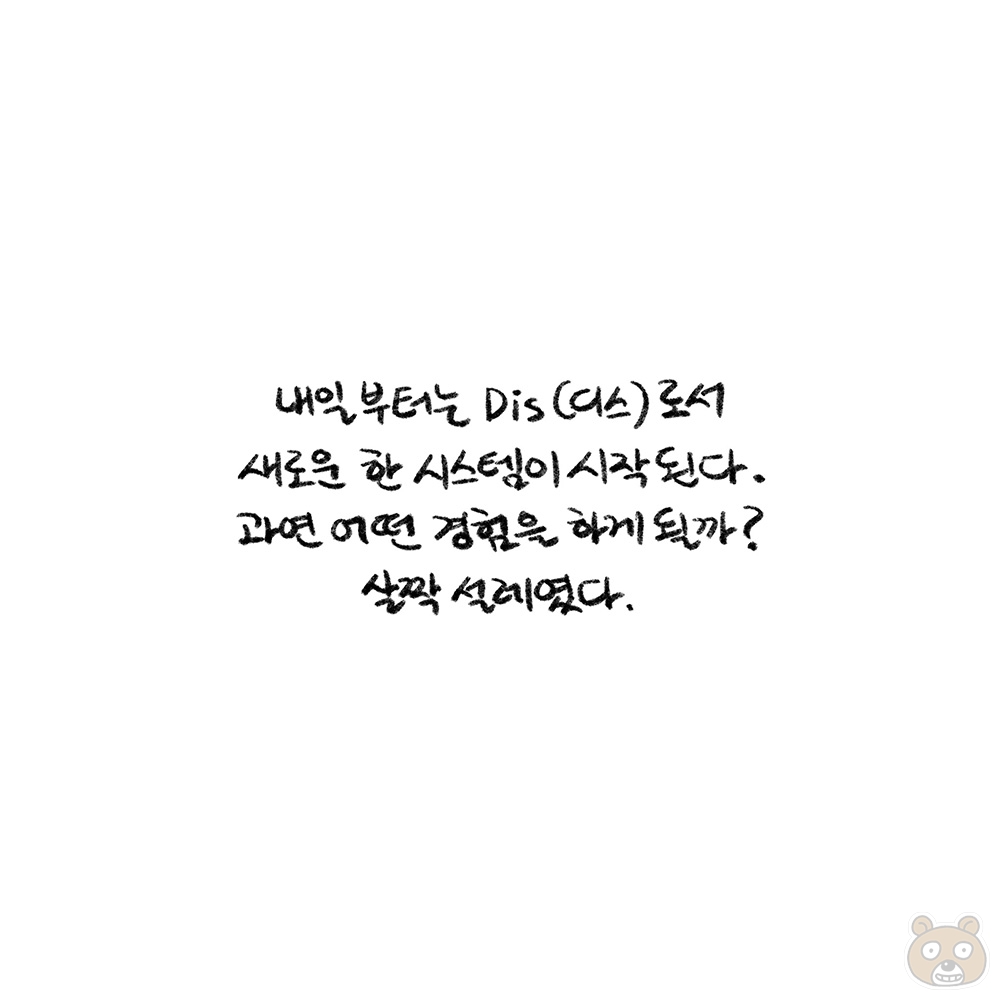 내일부터는 Dis (디스)로서
새로운 한 시스템이 시작된다.
과연 어떤 경험을 하게 될까?
살짝 설레였다.